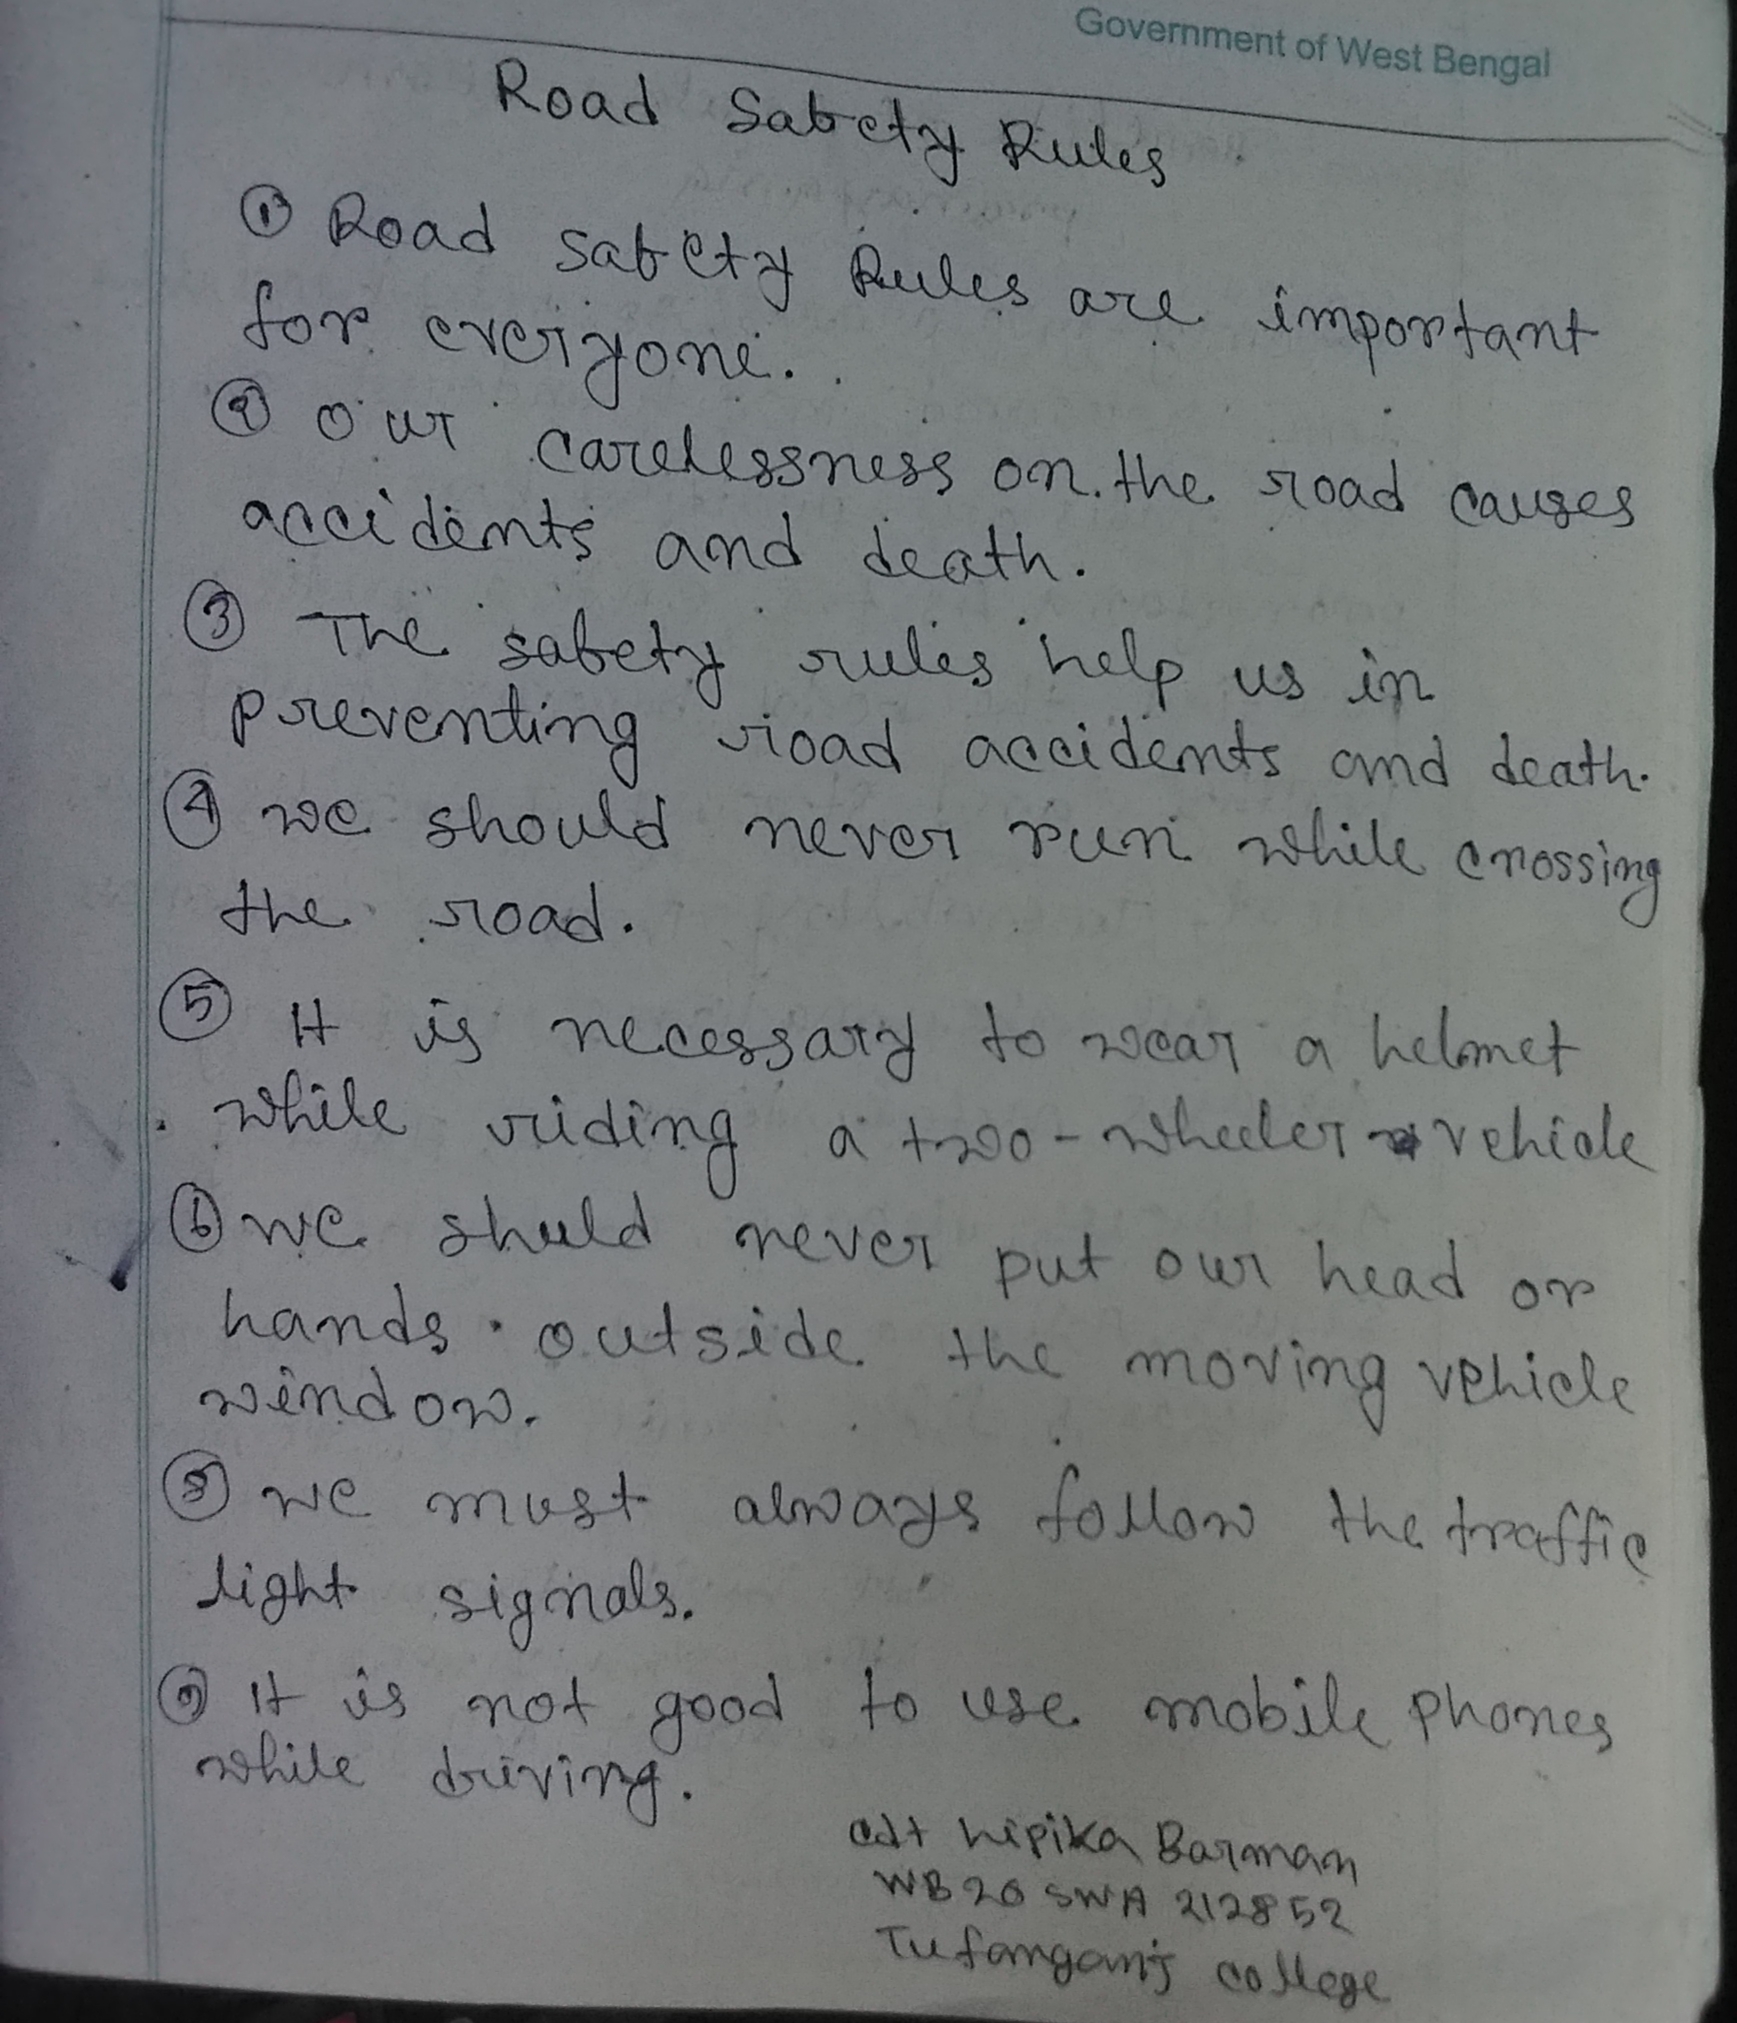 Government of West Bengal
Road Safety Rules
① Road safety Rules are important
for everyone.
② Our carelessness on the road causes
accidents and death.
③ The safety rules help us in
preventing road accidents and death.
④ we should never run while crossing
the road.
⑤ It is necessary to wear a helmet
while riding a two-wheeler vehicle
⑥ we shuld never put our head or
hands outside the moving vehicle
window.
⑧ we must always follow the traffic
light signals.
⑨ It is not good to use mobile phones
while driving.
cdt Lipika Barman
WB20 SWA 212852
Tufanganj college